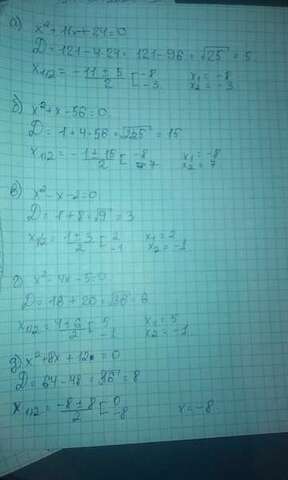 а) x²+11x+24=0
D=121-4·24=121-96=√25=5
x1/2=-11±5/2 [-8 -3 x1=-8 x2=-3
б) x²+x-56=0
D=1+4·56=√225=15
x1/2=-1±15/2 [-8 7 x1=-8 x2=7
в) x²-x-2=0
D=1+8=√9=3
x1/2=1±3/2 [2 -1 x1=2 x2=-1
г) x²-4x-5=0
D=18+20=√36=6
x1/2=4±6/2 [5 -1 x1=5 x2=-1
д) x²+8x+12=0
D=64-48=√36=8
x1/2=-8±8/2 [0 -8 x=-8